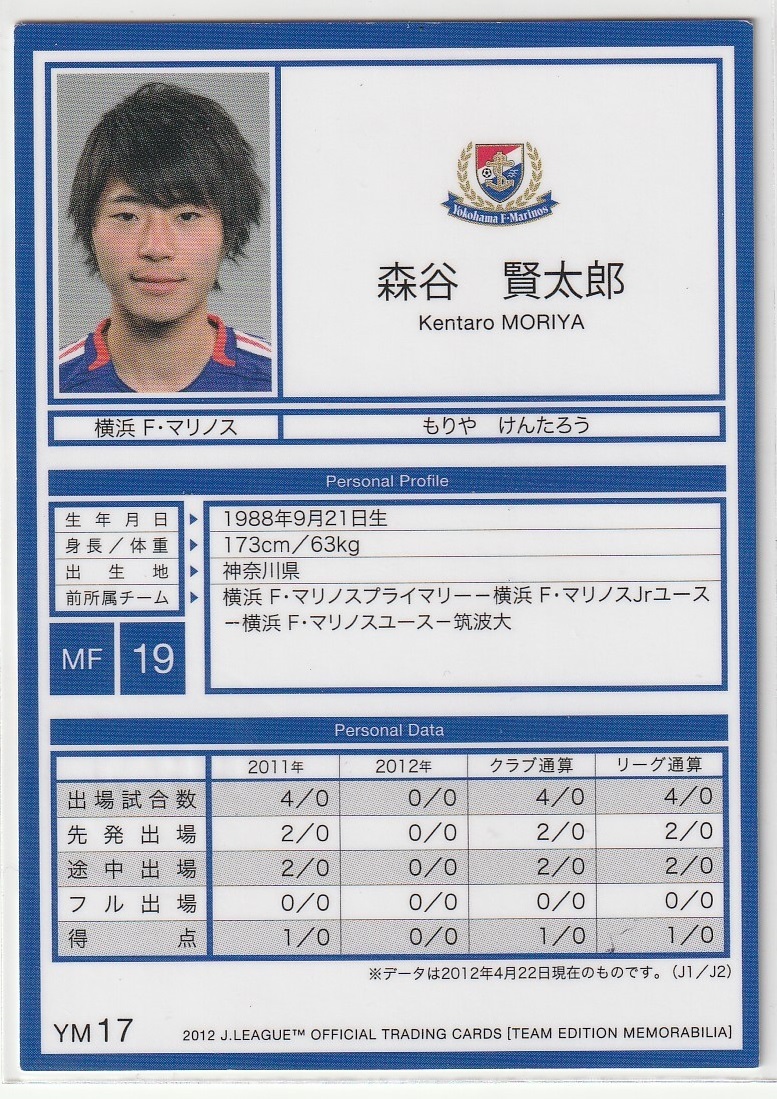 Yokohama F·Marinos
森谷　賢太郎
Kentaro MORIYA
横浜 F・マリノス
もりや　けんたろう
Personal Profile
生年月日 1988年9月21日生
身長／体重 173cm／63kg
出生地 神奈川県
前所属チーム 横浜 F・マリノスプライマリー－横浜 F・マリノスJrユース
－横浜 F・マリノスユース－筑波大
MF 19
Personal Data
2011年 2012年 クラブ通算 リーグ通算
出場試合数 4／0 0／0 4／0 4／0
先発出場 2／0 0／0 2／0 2／0
途中出場 2／0 0／0 2／0 2／0
フル出場 0／0 0／0 0／0 0／0
得点 1／0 0／0 1／0 1／0
※データは2012年4月22日現在のものです。（J1／J2）
YM17
2012 J.LEAGUE™ OFFICIAL TRADING CARDS [TEAM EDITION MEMORABILIA]